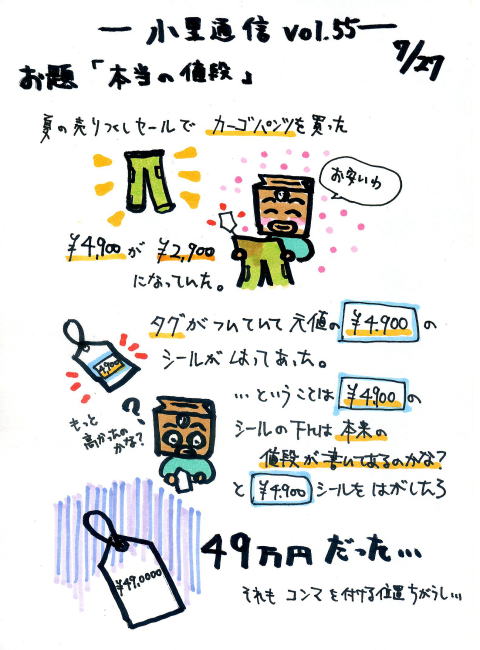 小里通信 vol.55
7/27
お題「本当の値段」
夏の売りつくしセールで カーゴパンツを買った
お安いわ
¥4,900が ¥2,900
になっていた。
タグがついていて 元値の ¥4.900 の
シールが はってあった。
¥4,900
…ということは ¥4,900 の
シールの下には 本来の
値段が書いてあるのかな?
もっと
高かったの
かな?
?
と ¥4.900 シールを はがしたら
¥49,0000
49万円だった…
それも コンマを付ける位置ちがうし…